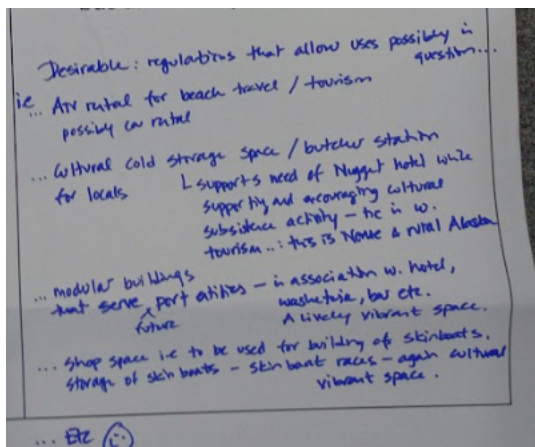 Desirable: regulations that allow uses possibly in
question...
i.e
... ATV rental for beach travel / tourism
possibly car rental
... cultural cold storage space / butcher station
for locals
L supports need of Nugget hotel while
supporting and encouraging cultural
subsistence activity - tie in w.
tourism..: this is Nome & rural Alaska
... modular buildings
that serve ^ port entities - in association w. hotel,
future
washeteria, bar etc.
A lively vibrant space.
... shop space i.e to be used for building of skinboats.
storage of skin boats - skin boat races - again cultural
vibrant space.
... Etc